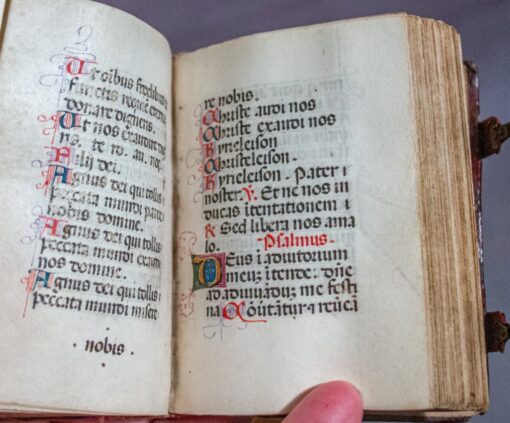 Ut oibus fidelibus
functis requie eterna
donare digneris.
Ut nos exaudire dig
ns. te. ro. au. nos.
Fili dei.
Agnus dei qui tollis
peccata mundi parce
nobis domine.
Agnus dei qui tollis
peccata mundi exaudi
nos domine.
Agnus dei qui tollis
peccata mundi misere
nobis.
re nobis.
Christe audi nos
Christe exaudi nos
Kyrieleison
Christeleison.
Kyrieleison. Pater
noster. V. Et ne nos in
ducas i tentationem
R Sed libera nos a ma
lo. Psalmus.
Deus i adiutorium
meuz itende. Dne
ad adiuvaduz me festi
na Cofutatur 7 reveat